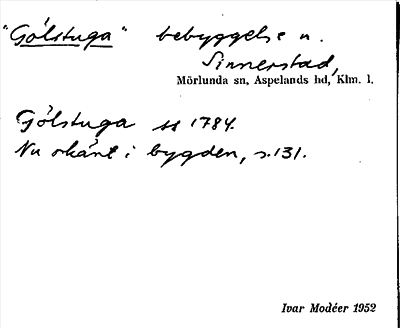 "Gölstuga" bebyggelse u.
Sinnerstad,
Mörlunda sn, Aspelands hd, Klm. l.
Gölstuga ss 1784.
Nu okänt i bygden, s. 131.
Ivar Modéer 1952